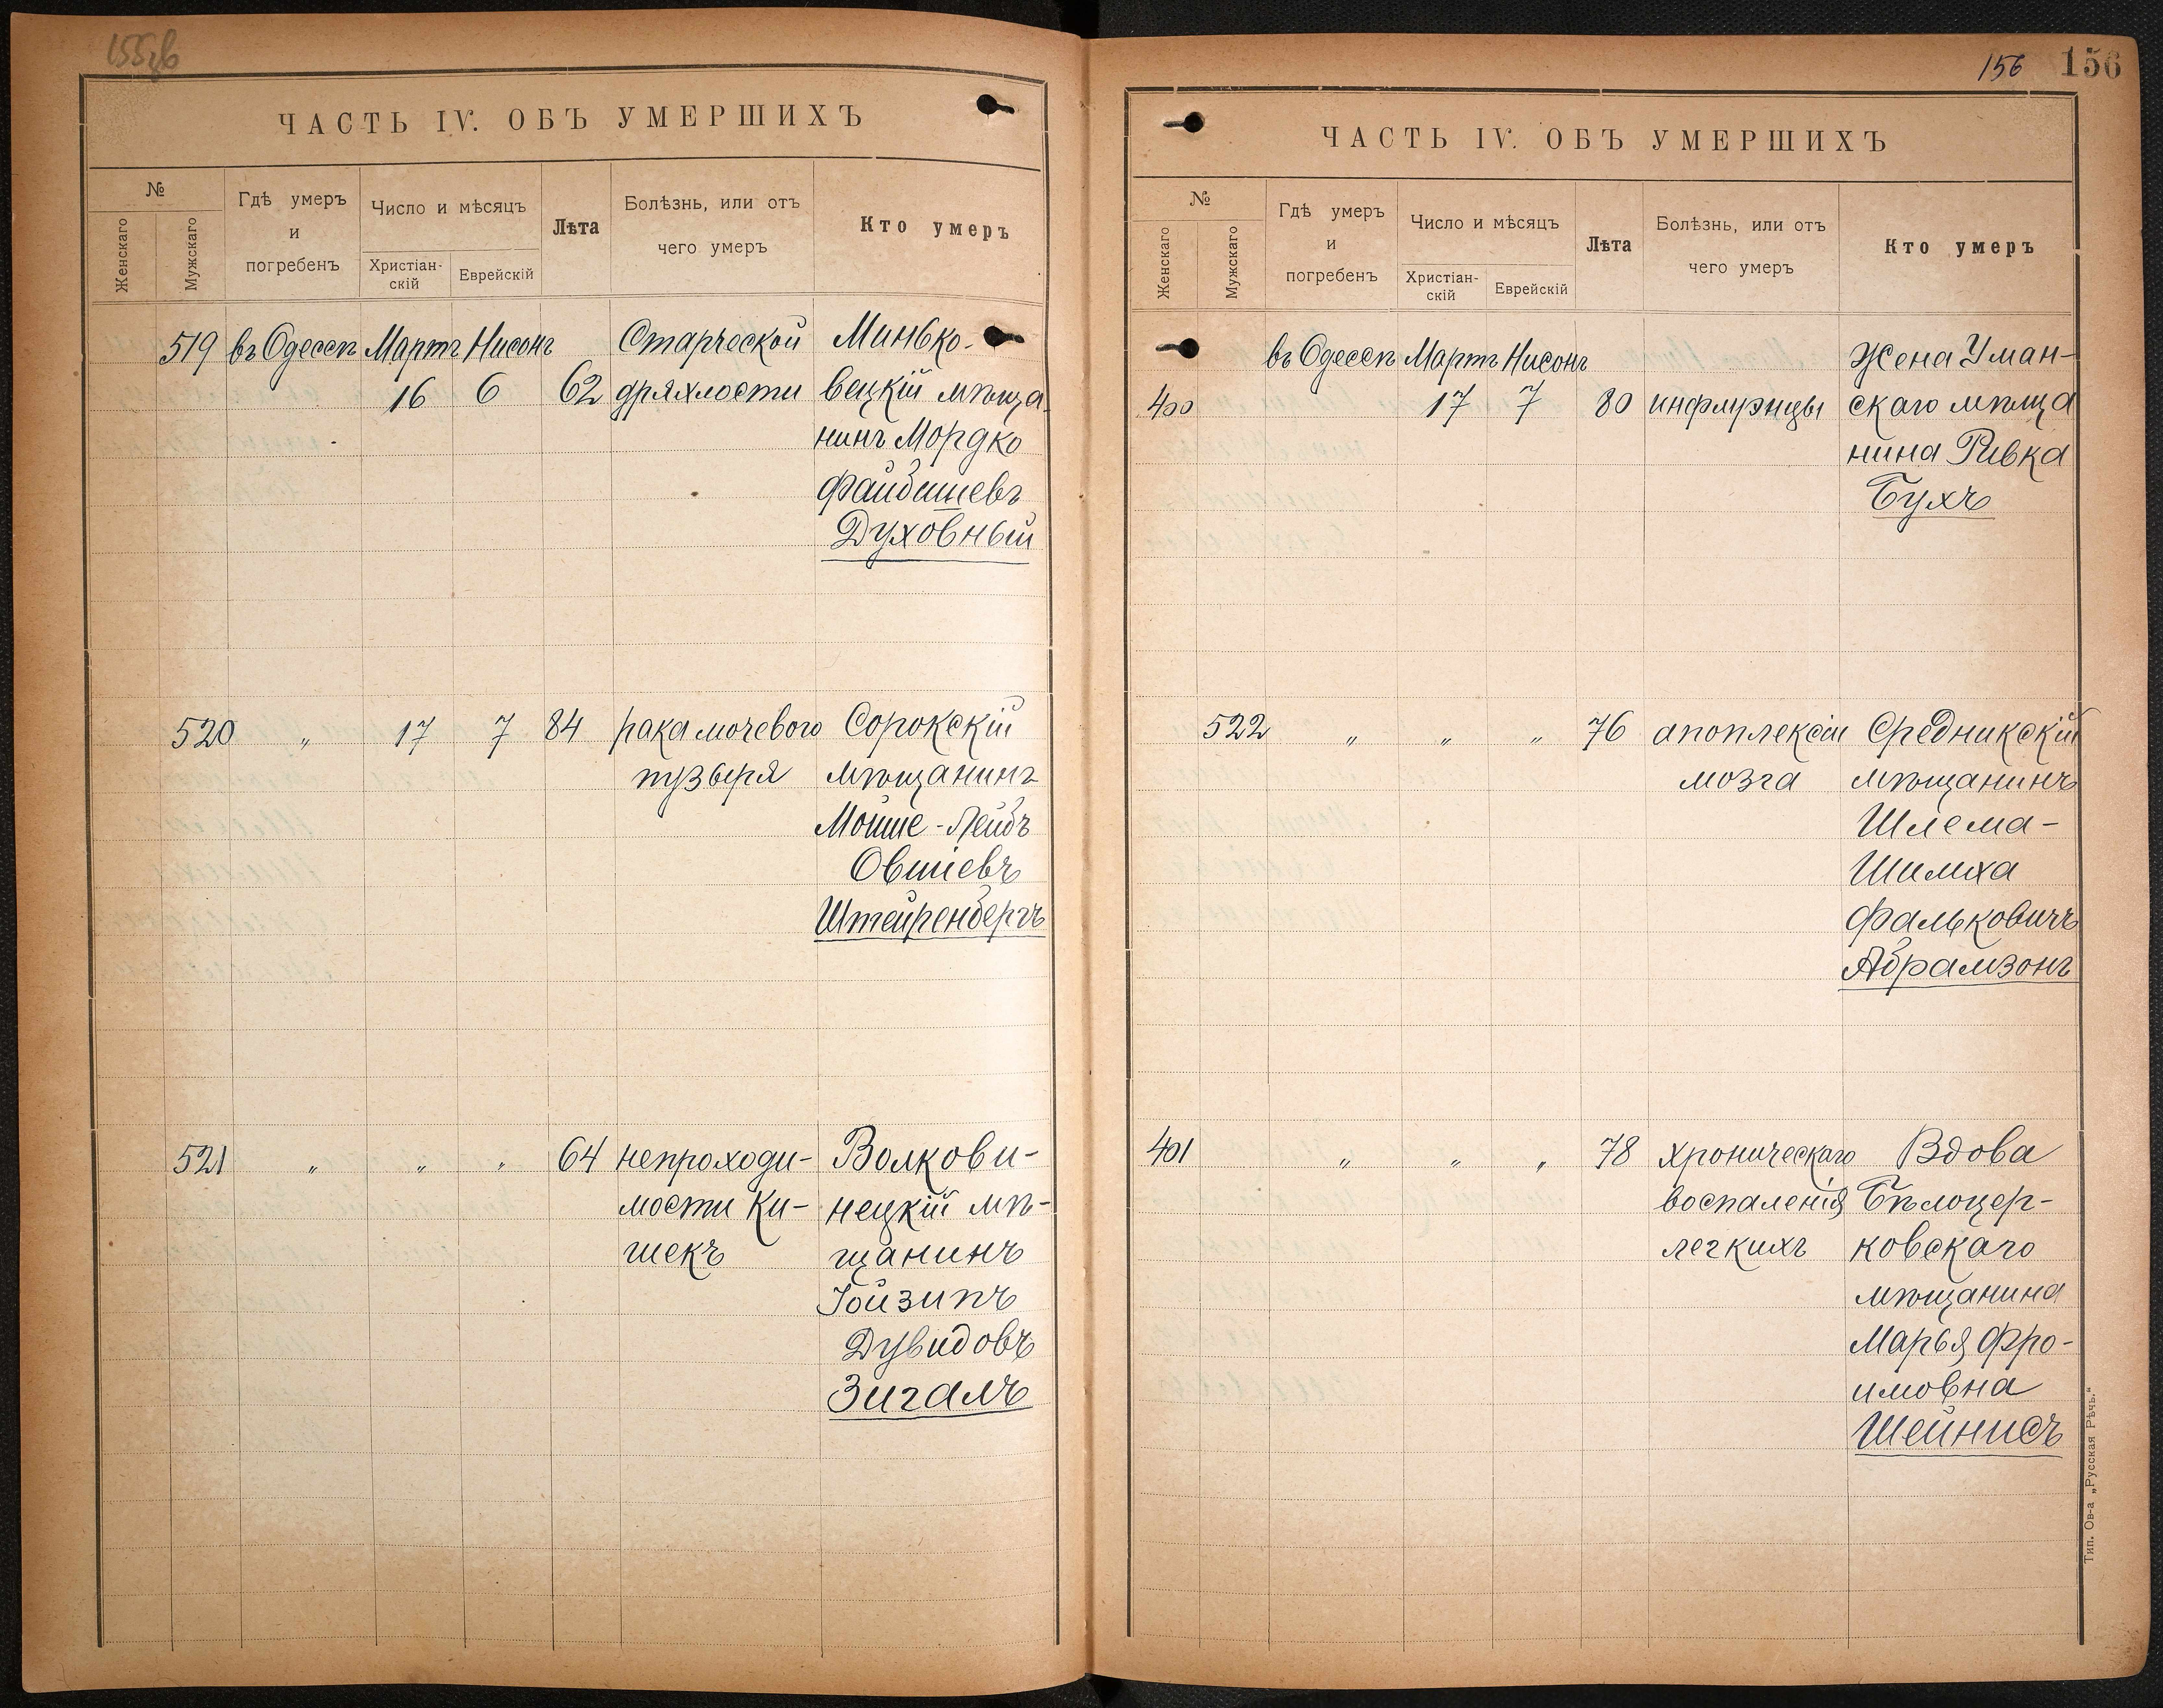 155об
ЧАСТЬ IV. ОБЪ УМЕРШИХЪ
№
Женскаго
Мужскаго
Гдѣ умеръ
и
погребенъ
Число и мѣсяцъ
Христіан-
скій
Еврейскій
Лѣта
Болѣзнь, или отъ
чего умеръ
Кто умеръ
519 въ Одессѣ Мартъ Нисонъ Старческой Минько-
16 6 62 дряхлости вецкій мѣща
нинъ Мордко
Файбишевъ
Духовный
520 „ 17 7 84 рака мочевого Сорокскій
пузыря мѣщанинъ
Мойше-Лейбъ
Овшіевъ
Штейренбергъ
521 „ „ „ 64 непроходи- Волкови-
мости Ки- нецкій мѣ-
шекъ щанинъ
Іойзипъ
Дувидовъ
Зигалъ
156 156
ЧАСТЬ IV. ОБЪ УМЕРШИХЪ
№
Женскаго
Мужскаго
Гдѣ умеръ
и
погребенъ
Число и мѣсяцъ
Христіан-
скій
Еврейскій
Лѣта
Болѣзнь, или отъ
чего умеръ
Кто умеръ
въ Одессѣ Мартъ Нисонъ Жена Уман-
400 17 7 80 инфлуэнцы скаго мѣща
нина Ривка
Бухъ
522 „ „ „ 76 апоплексіи Средникскій
мозга мѣщанинъ
Шлема-
Шимха
Фальковичъ
Абрамзонъ
401 „ „ „ 78 хроническаго Вдова
воспаленія Бѣлоцер-
легкихъ ковскаго
мѣщанина
Марья Фро-
имовна
Шейнисъ
Тип. Ов-а „Русская Рѣчь.“